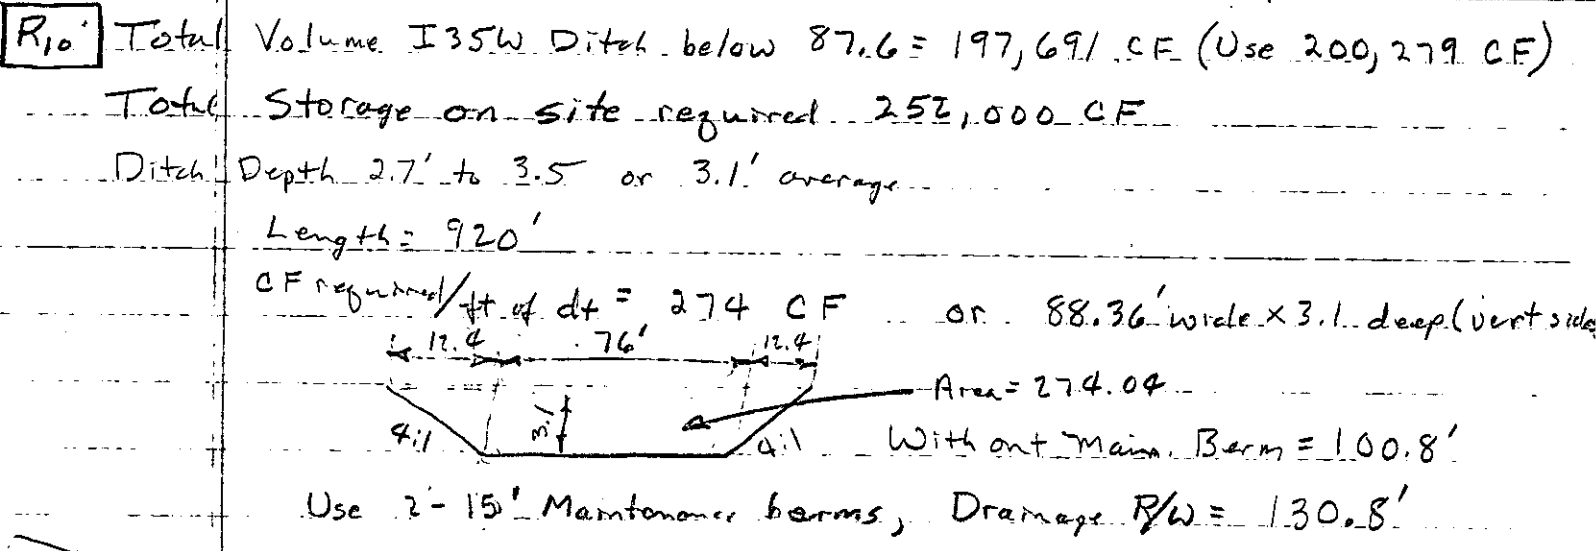 R10 Total Volume I35W Ditch below 87.6 = 197,691 CF (Use 200,279 CF)
Total Storage on site required 252,000 CF
Ditch Depth 2.7' to 3.5 or 3.1' average
Length = 920'
CF required/ft of dt = 274 CF or 88.36' wide x 3.1 deep (vert side
12.4 76' 12.4
Area = 274.04
4:1 3.1 4:1 Without Main. Berm = 100.8'
Use 2-15' Maintenance berms, Drainage R/W = 130.8'